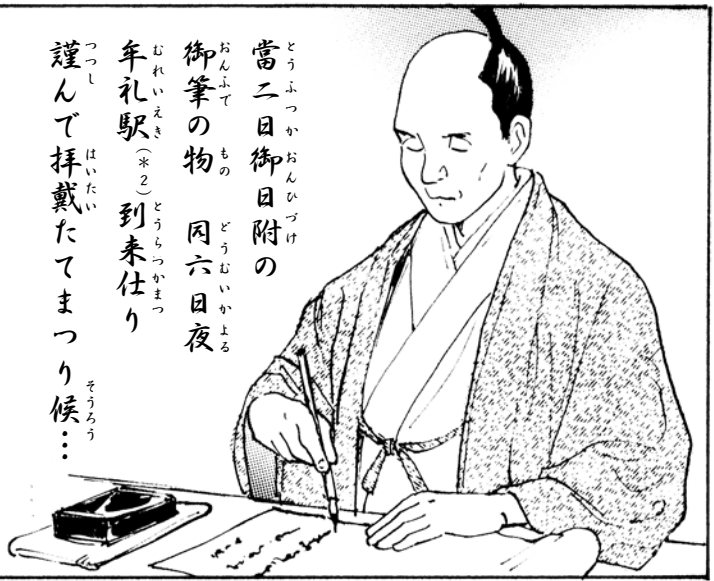 當二日御日附の
御筆の物　同六日夜
牟礼駅(*2)到来仕り
謹んで拝戴たてまつり候…